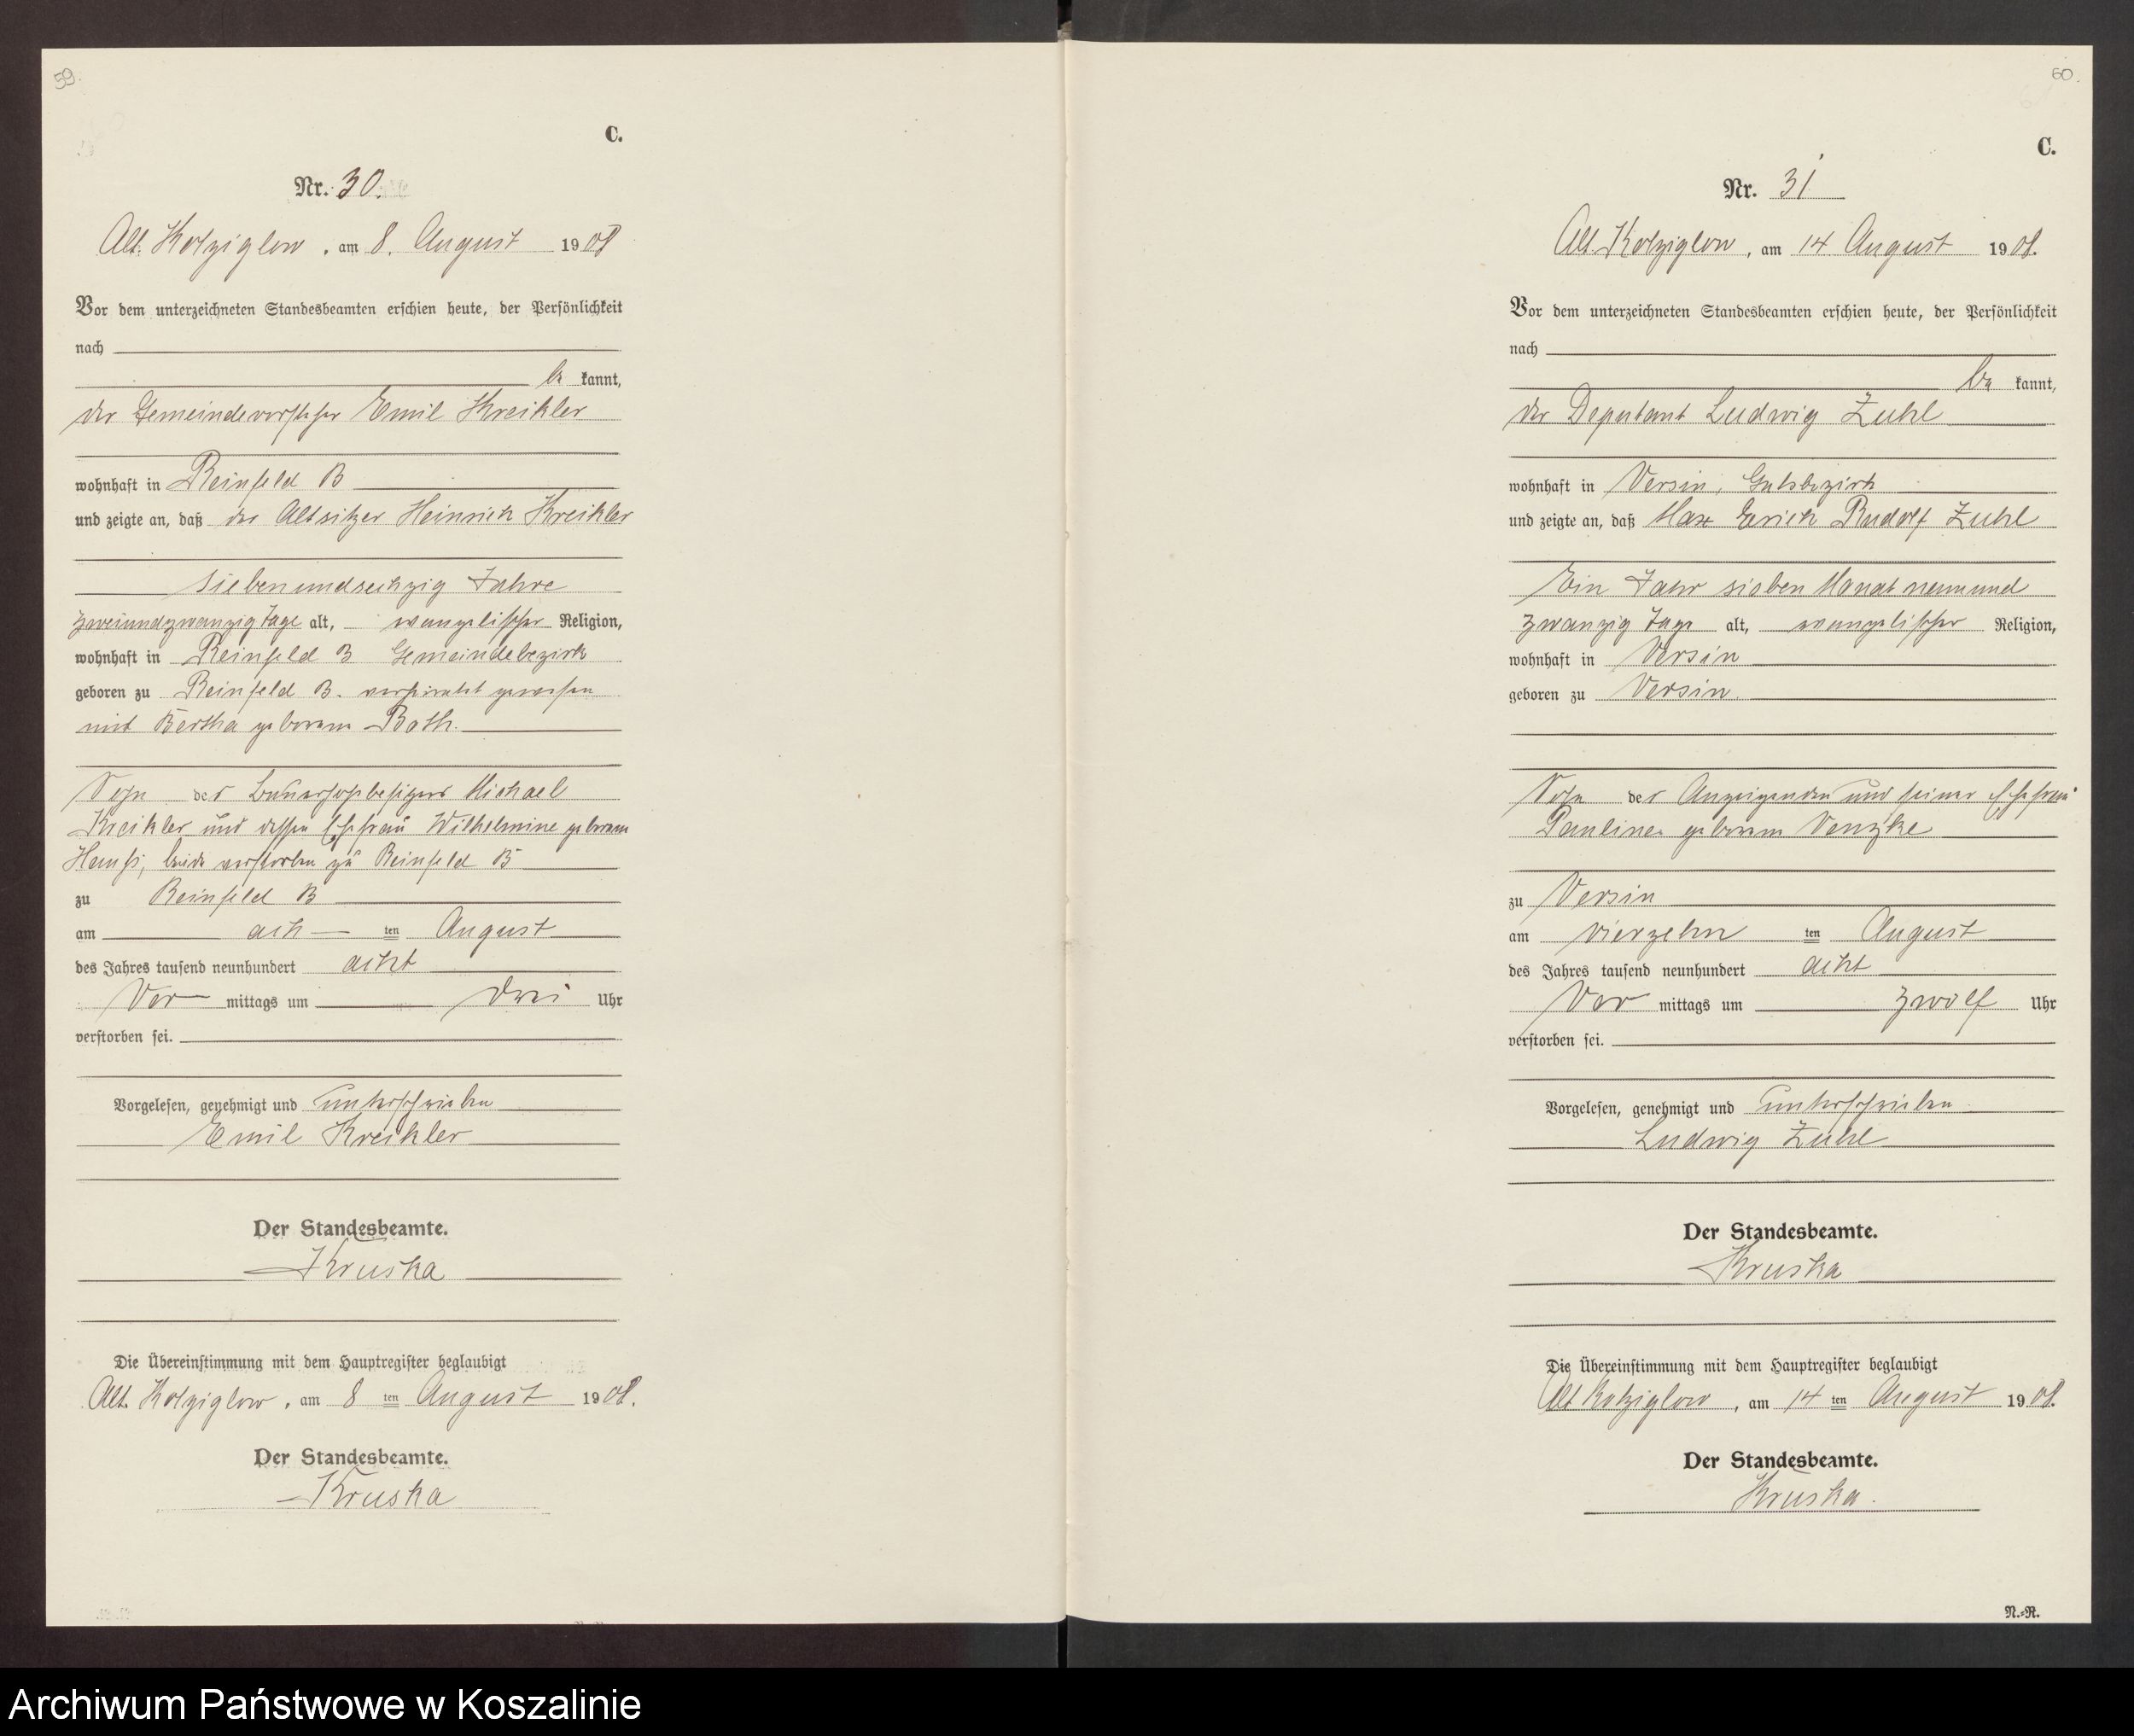 59.
C.
Nr. 30.
Alt. Kolziglow, am 8. August 1908
Vor dem unterzeichneten Standesbeamten erschien heute, der Persönlichkeit
nach
be kannt,
der Gemeindevorsteher Emil Kreikler
wohnhaft in Reinfeld B
und zeigte an, daß der Altsitzer Heinrich Kreikler
siebenundsechzig Jahre
zweiundzwanzig Tage alt, evangelischer Religion,
wohnhaft in Reinfeld B Gemeindebezirk
geboren zu Reinfeld B. verheiratet gewesen
mit Bertha geborene Both.
Sohn des Bauerhofsbesitzers Michael
Kreikler und dessen Ehefrau Wilhelmine geborene
beide verstorben zu Reinfeld B
zu Reinfeld B
am ach ten August
des Jahres tausend neunhundert acht
Vor mittags um drei Uhr
verstorben sei.
Vorgelesen, genehmigt und unterschrieben
Emil Kreikler
Der Standesbeamte.
Kruska
Die Übereinstimmung mit dem Hauptregister beglaubigt
Alt. Kolziglow, am 8 ten August 1908.
Der Standesbeamte.
Kruska
60.
C.
Nr. 31
Alt. Kolziglow, am 14 August 1908.
Vor dem unterzeichneten Standesbeamten erschien heute, der Persönlichkeit
nach
be kannt,
der Deputant Ludwig Zuhl
wohnhaft in Versin, Gutsbezirk
und zeigte an, daß Max Erich Rudolf Zuhl
Ein Jahr sieben Monat neunund
zwanzig Tage alt, evangelischer Religion,
wohnhaft in Versin
geboren zu Versin.
Sohn des Anzeigenden und seiner Ehefrau
Pauline geborene Venzke
zu Versin
am vierzehn ten August
des Jahres tausend neunhundert acht
Vor mittags um zwölf Uhr
verstorben sei.
Vorgelesen, genehmigt und unterschrieben
Ludwig Zuhl
Der Standesbeamte.
Kruska
Die Übereinstimmung mit dem Hauptregister beglaubigt
Alt Kolziglow, am 14 ten August 1908.
Der Standesbeamte.
Kruska.
N.-R.
Archiwum Państwowe w Koszalinie